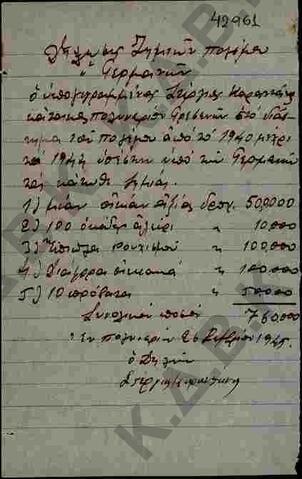 42961
Δήλωσις Ζημιών πολέμου
Γερμανών
Ο υπογεγραμμένος Στέργιος
κάτοικος Πολυνερίου Γρεβενών στο διάσ
τημα του πολέμου από το 1940 μέχρι
το 1944 υπέστην υπό των Γερμανών
τας κάτωθι ζημίας.
1) μίαν οικίαν αξίας δρχ. 500000
2) 100 οκάδες αλεύρι " 10.000
3) Έπιπλα Ρουχισμού " 100.000
4) Διάφορα οικιακά " 100.000
5) 10 πρόβατα " 50000
Συνολικόν ποσόν 760.000
Εν Πολυνερίω 26 1945
Ο Δηλών
Στέργιος
Κ.Δ.Β.Κ.